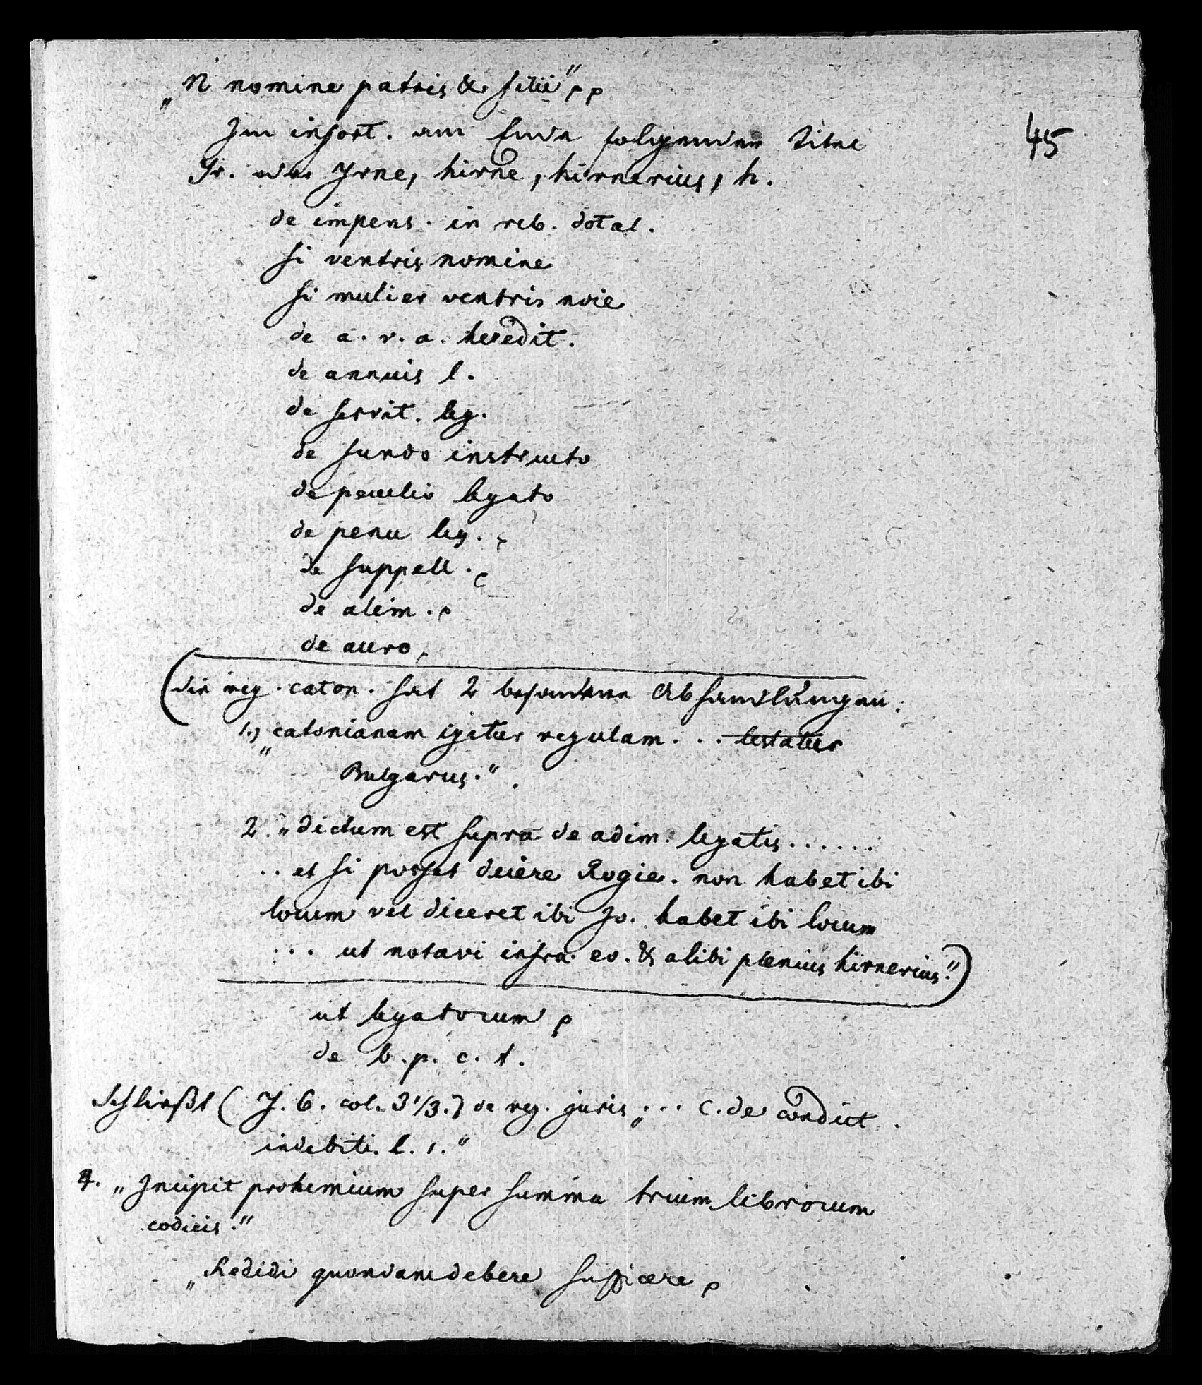 „N nomine patris & filii" pp
45
Im infort. am Ende folgender Titel
Yr. oder Yrne, hirne, hirnerius, h.
de impens. in reb. dotal.
si ventris nomine
si mulier ventris noie
de a. v. a. heredit.
de annuis l.
de servit. leg.
de fundo instructo
de peculio legato
de penu leg.
de suppell.
de alim.
de auro
(die reg. caton. hat 2 besondere Abhandlungen:
1., „catonianam igitur regulam... testatur
Bulgarus."
2. „dictum est supra de adim. legatis......
.. et si posset dicere Rogie. non habet ibi
locum vel diceret ibi Jo. habet ibi locum
... ut notavi infra eo. & alibi plenius hirnerius.")
ut legatorum p
de b. p. c. t.
Schließt (J. 6. col. 3 1/3.) de reg. juris „... C. de condict.
indebiti. l. 1."
4. „Incipit prohemium super summa trium librorum
codicis."
„Redidi quondam debere sufficere p